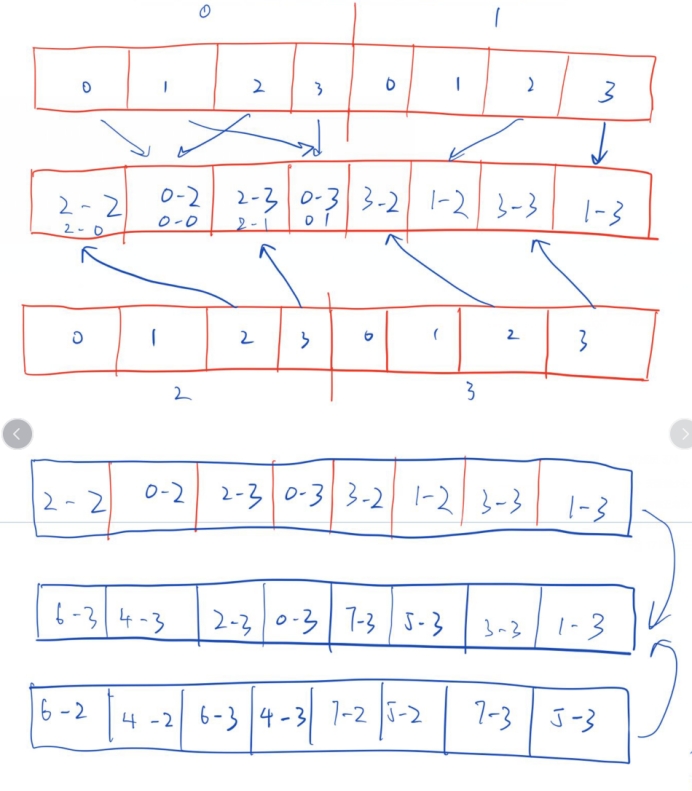 0 1
0 1 2 3 0 1 2 3
2-2 0-2 2-3 0-3 3-2 1-2 3-3 1-3
2-0 0-0 2-1 0 1
0 1 2 3 0 1 2 3
2 3
2-2 0-2 2-3 0-3 3-2 1-2 3-3 1-3
6-3 4-3 2-3 0-3 7-3 5-3 3-3 1-3
6-2 4-2 6-3 4-3 7-2 5-2 7-3 5-3